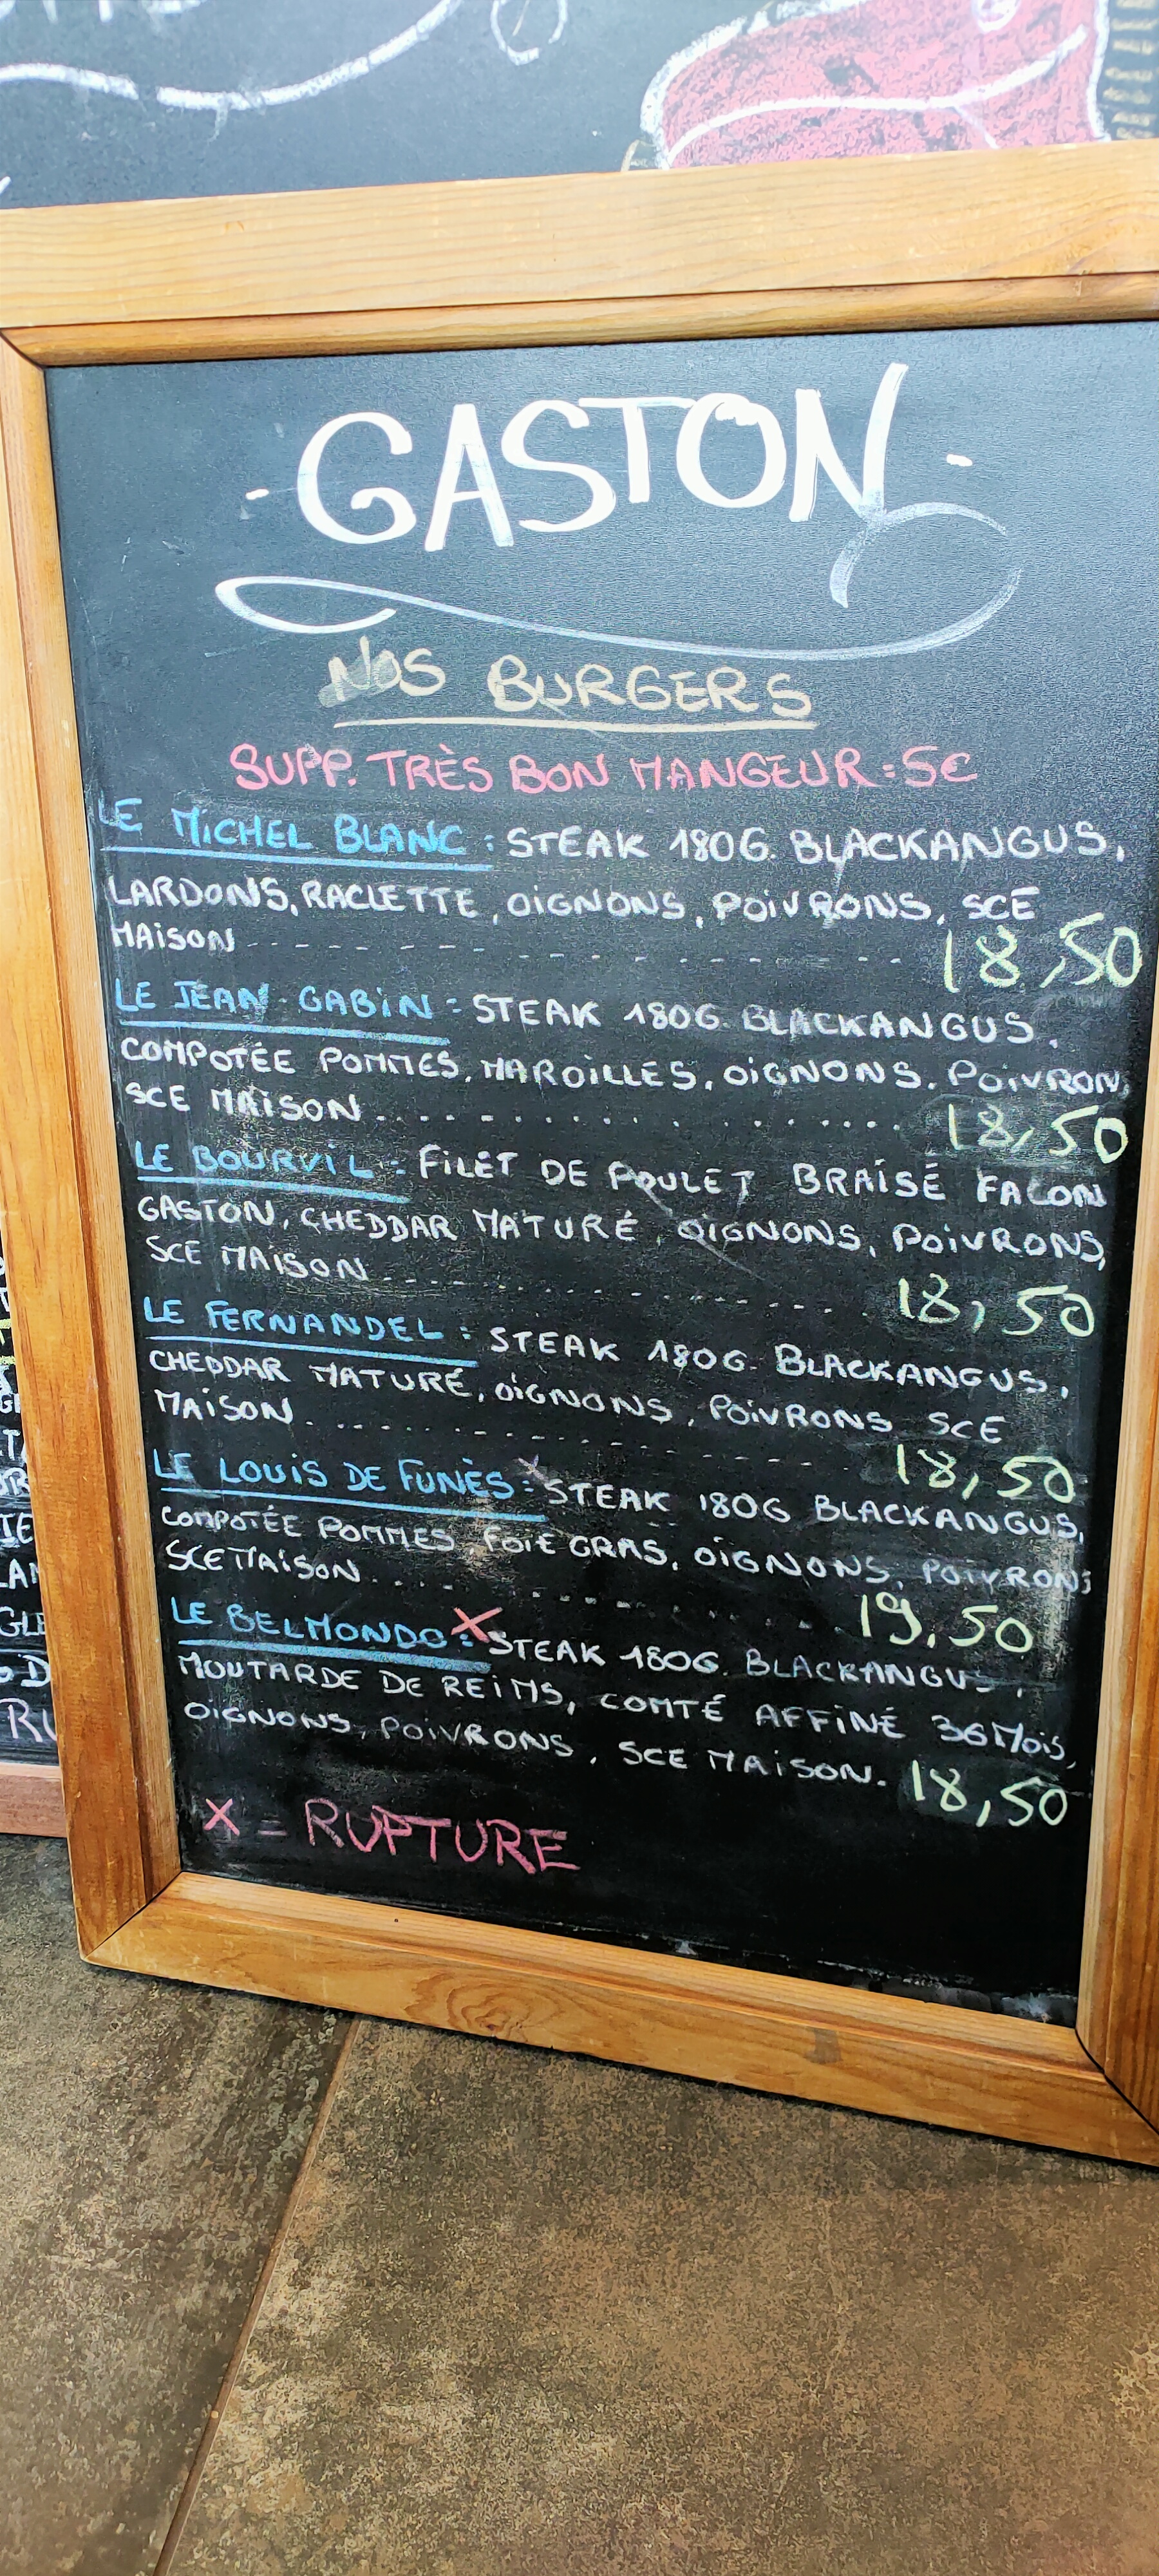 - GASTON -
NOS BURGERS
SUPP. TRÈS BON MANGEUR : 5€
LE MICHEL BLANC : STEAK 180G. BLACKANGUS,
LARDONS, RACLETTE, OIGNONS, POIVRONS, SCE
MAISON 18,50
LE JEAN GABIN : STEAK 180G. BLACKANGUS,
COMPOTÉE POMMES, MAROILLES, OIGNONS, POIVRON,
SCE MAISON 18,50
LE BOURVIL : FILET DE POULET BRAISÉ FACON
GASTON, CHEDDAR MATURÉ, OIGNONS, POIVRONS,
SCE MAISON 18,50
LE FERNANDEL : STEAK 180G. BLACKANGUS,
CHEDDAR MATURÉ, OIGNONS, POIVRONS SCE
MAISON 18,50
LE LOUIS DE FUNÈS : STEAK 180G BLACKANGUS,
COMPOTÉE POMMES, FOIE GRAS, OIGNONS, POIVRONS
SCE MAISON 19,50
LE BELMONDO X : STEAK 180G. BLACKANGUS,
MOUTARDE DE REIMS, COMTÉ AFFINÉ 36 Mois,
OIGNONS, POIVRONS, SCE MAISON. 18,50
X = RUPTURE